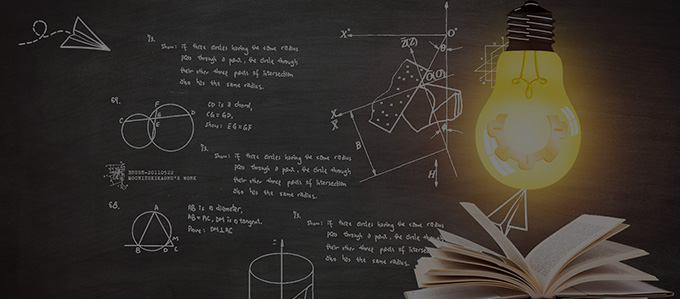 Show: if three circles having the same radius
pass through a point, the circle through
their other three points of intersection
also has the same radius.
69.
CD is a chord,
CG = GD,
Show: EG = GF
C
F
G
E
D
Show: if three circles having the same radius
pass through a point, the circle through
their other three points of intersection
also has the same radius.
68.
AB is a diameter,
AB = AC, DM is a tangent.
Prove: DM⊥AC
A
B
D
M
C
Show: if three circles having the same radius
pass through a point, the circle through
their other three points of intersection
also has the same radius.
X
O
θ
B
H